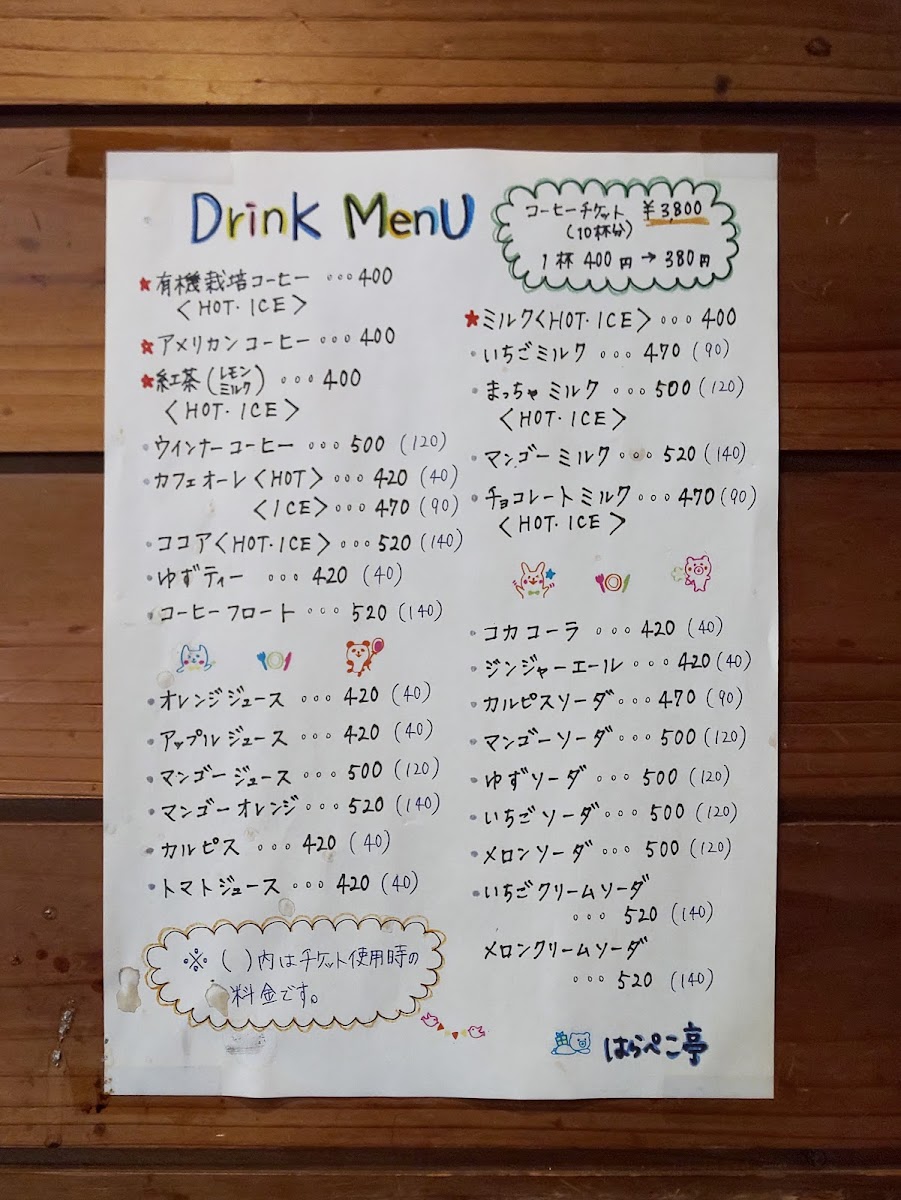 Drink Menu
コーヒーチケット ¥3,800
(10杯分)
1杯 400円→380円
★有機栽培コーヒー ・・・400
〈HOT・ICE〉
★アメリカンコーヒー ・・・400
★紅茶(レモン ミルク) ・・・400
〈HOT・ICE〉
・ウインナーコーヒー ・・・500 (120)
・カフェオーレ〈HOT〉・・・420 (40)
〈ICE〉・・・470 (90)
・ココア〈HOT・ICE〉・・・520 (140)
・ゆずティー ・・・420 (40)
・コーヒーフロート ・・・520 (140)
・オレンジジュース ・・・420 (40)
・アップルジュース ・・・420 (40)
・マンゴージュース ・・・500 (120)
・マンゴーオレンジ・・・520 (140)
・カルピス ・・・420 (40)
・トマトジュース ・・・420 (40)
※( )内はチケット使用時の
料金です。
★ミルク〈HOT・ICE〉・・・400
・いちごミルク ・・・470 (90)
・まっちゃミルク ・・・500 (120)
〈HOT・ICE〉
・マンゴーミルク・・・520 (140)
・チョコレートミルク・・・470 (90)
〈HOT・ICE〉
・コカコーラ ・・・420 (40)
・ジンジャーエール・・・420 (40)
・カルピスソーダ・・・470 (90)
・マンゴーソーダ・・・500 (120)
・ゆずソーダ ・・・500 (120)
・いちごソーダ・・・500 (120)
・メロンソーダ・・・500 (120)
・いちごクリームソーダ
・・・520 (140)
メロンクリームソーダ
・・・520 (140)
はらぺこ亭